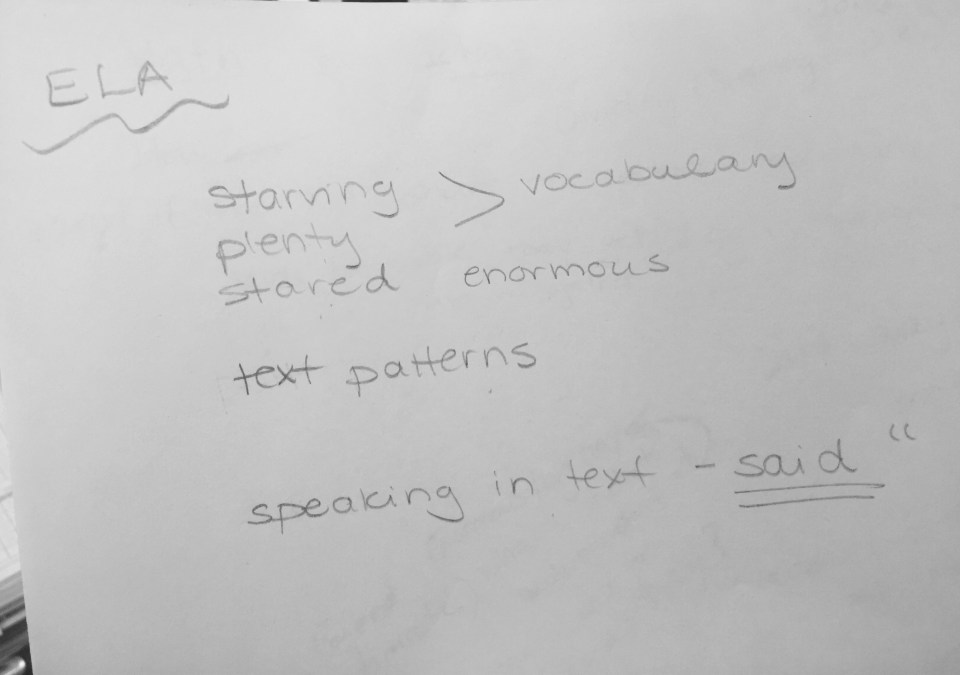 ELA
starving > vocabulary
plenty
stared enormous
text patterns
speaking in text - said "